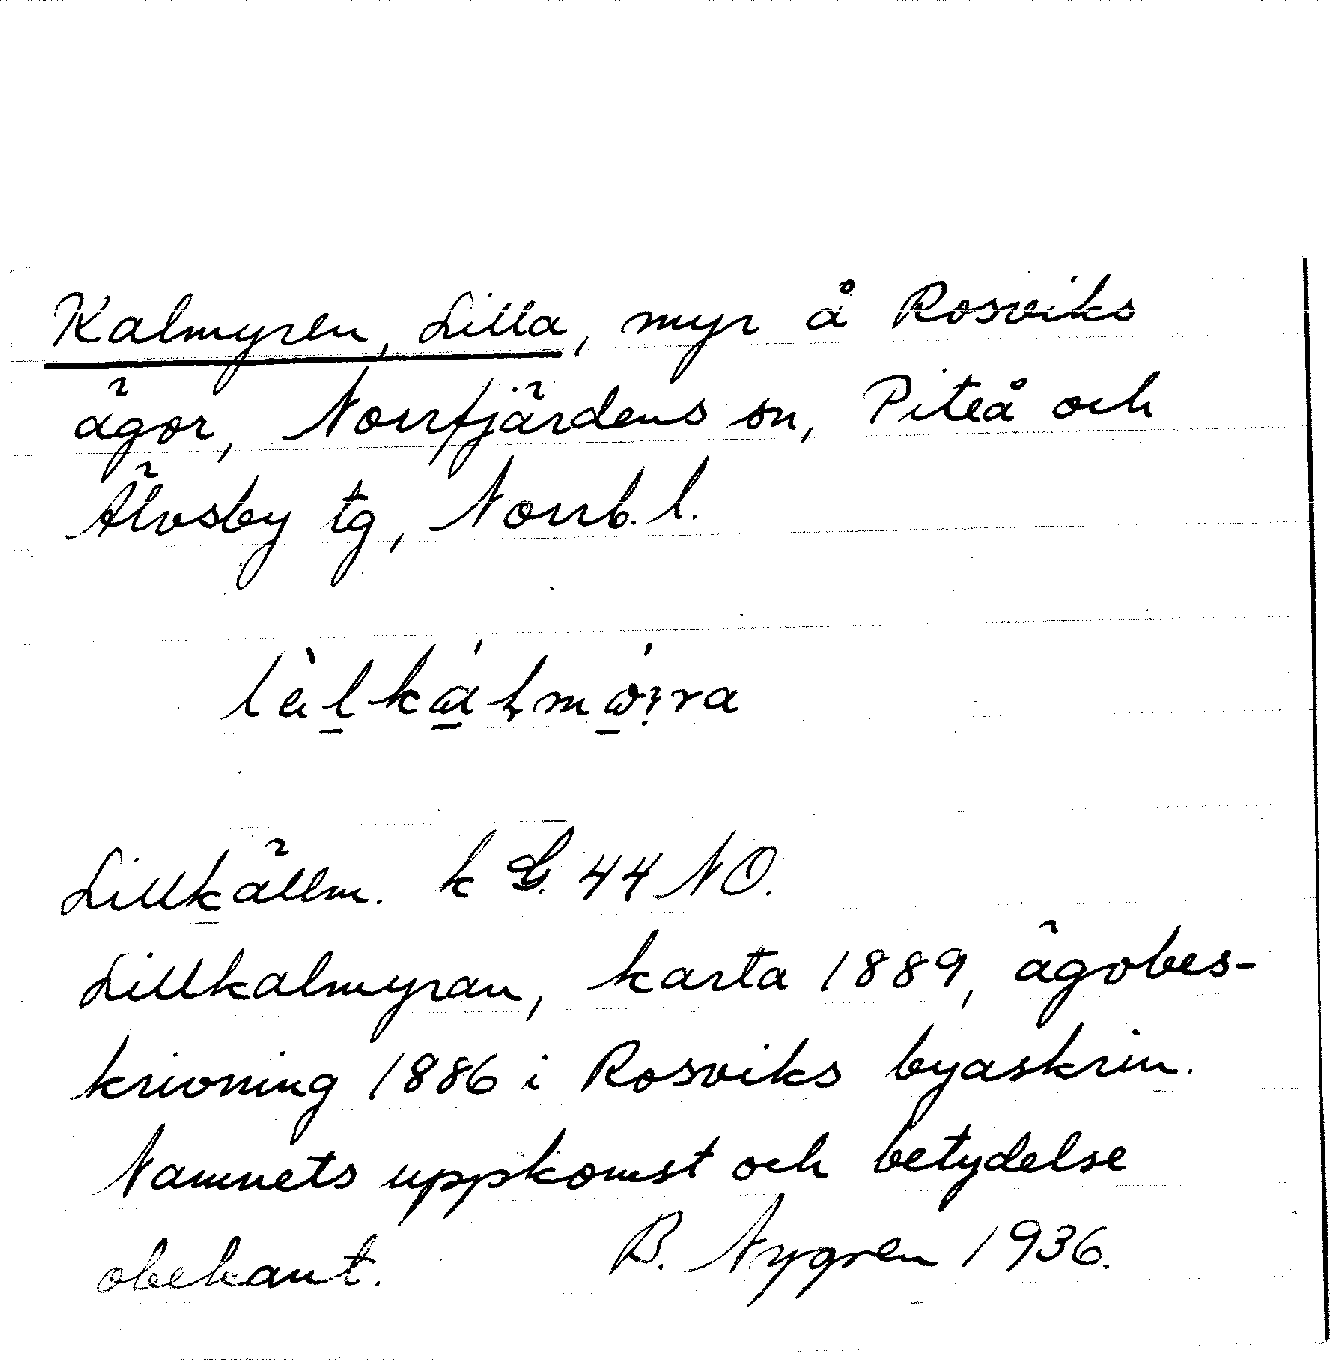 Kalmyren, Lilla, myr å Rosviks
ägor, Norrfjärdens sn, Piteå och
Älvsby tg, Norrb. l.
Lillkällm. k G. 44 NO.
Lillkalmyran, karta 1889, ägobes-
krivning 1886 i Rosviks byaskrin.
Namnets uppkomst och betydelse
obekant. B. Nygren 1936.